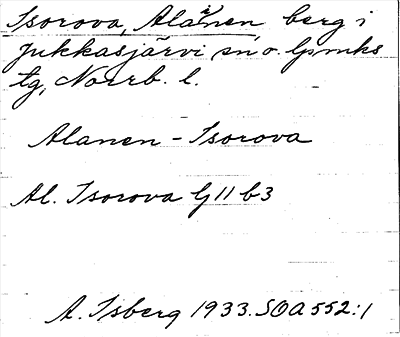 Isorova, Alanen, berg i
Jukkasjärvi sn o. lpmks
tg, Norrb. l.
Alanen - Isorova
Al. Isorova G 11 b 3
A. Isberg 1933. SOA 552:1